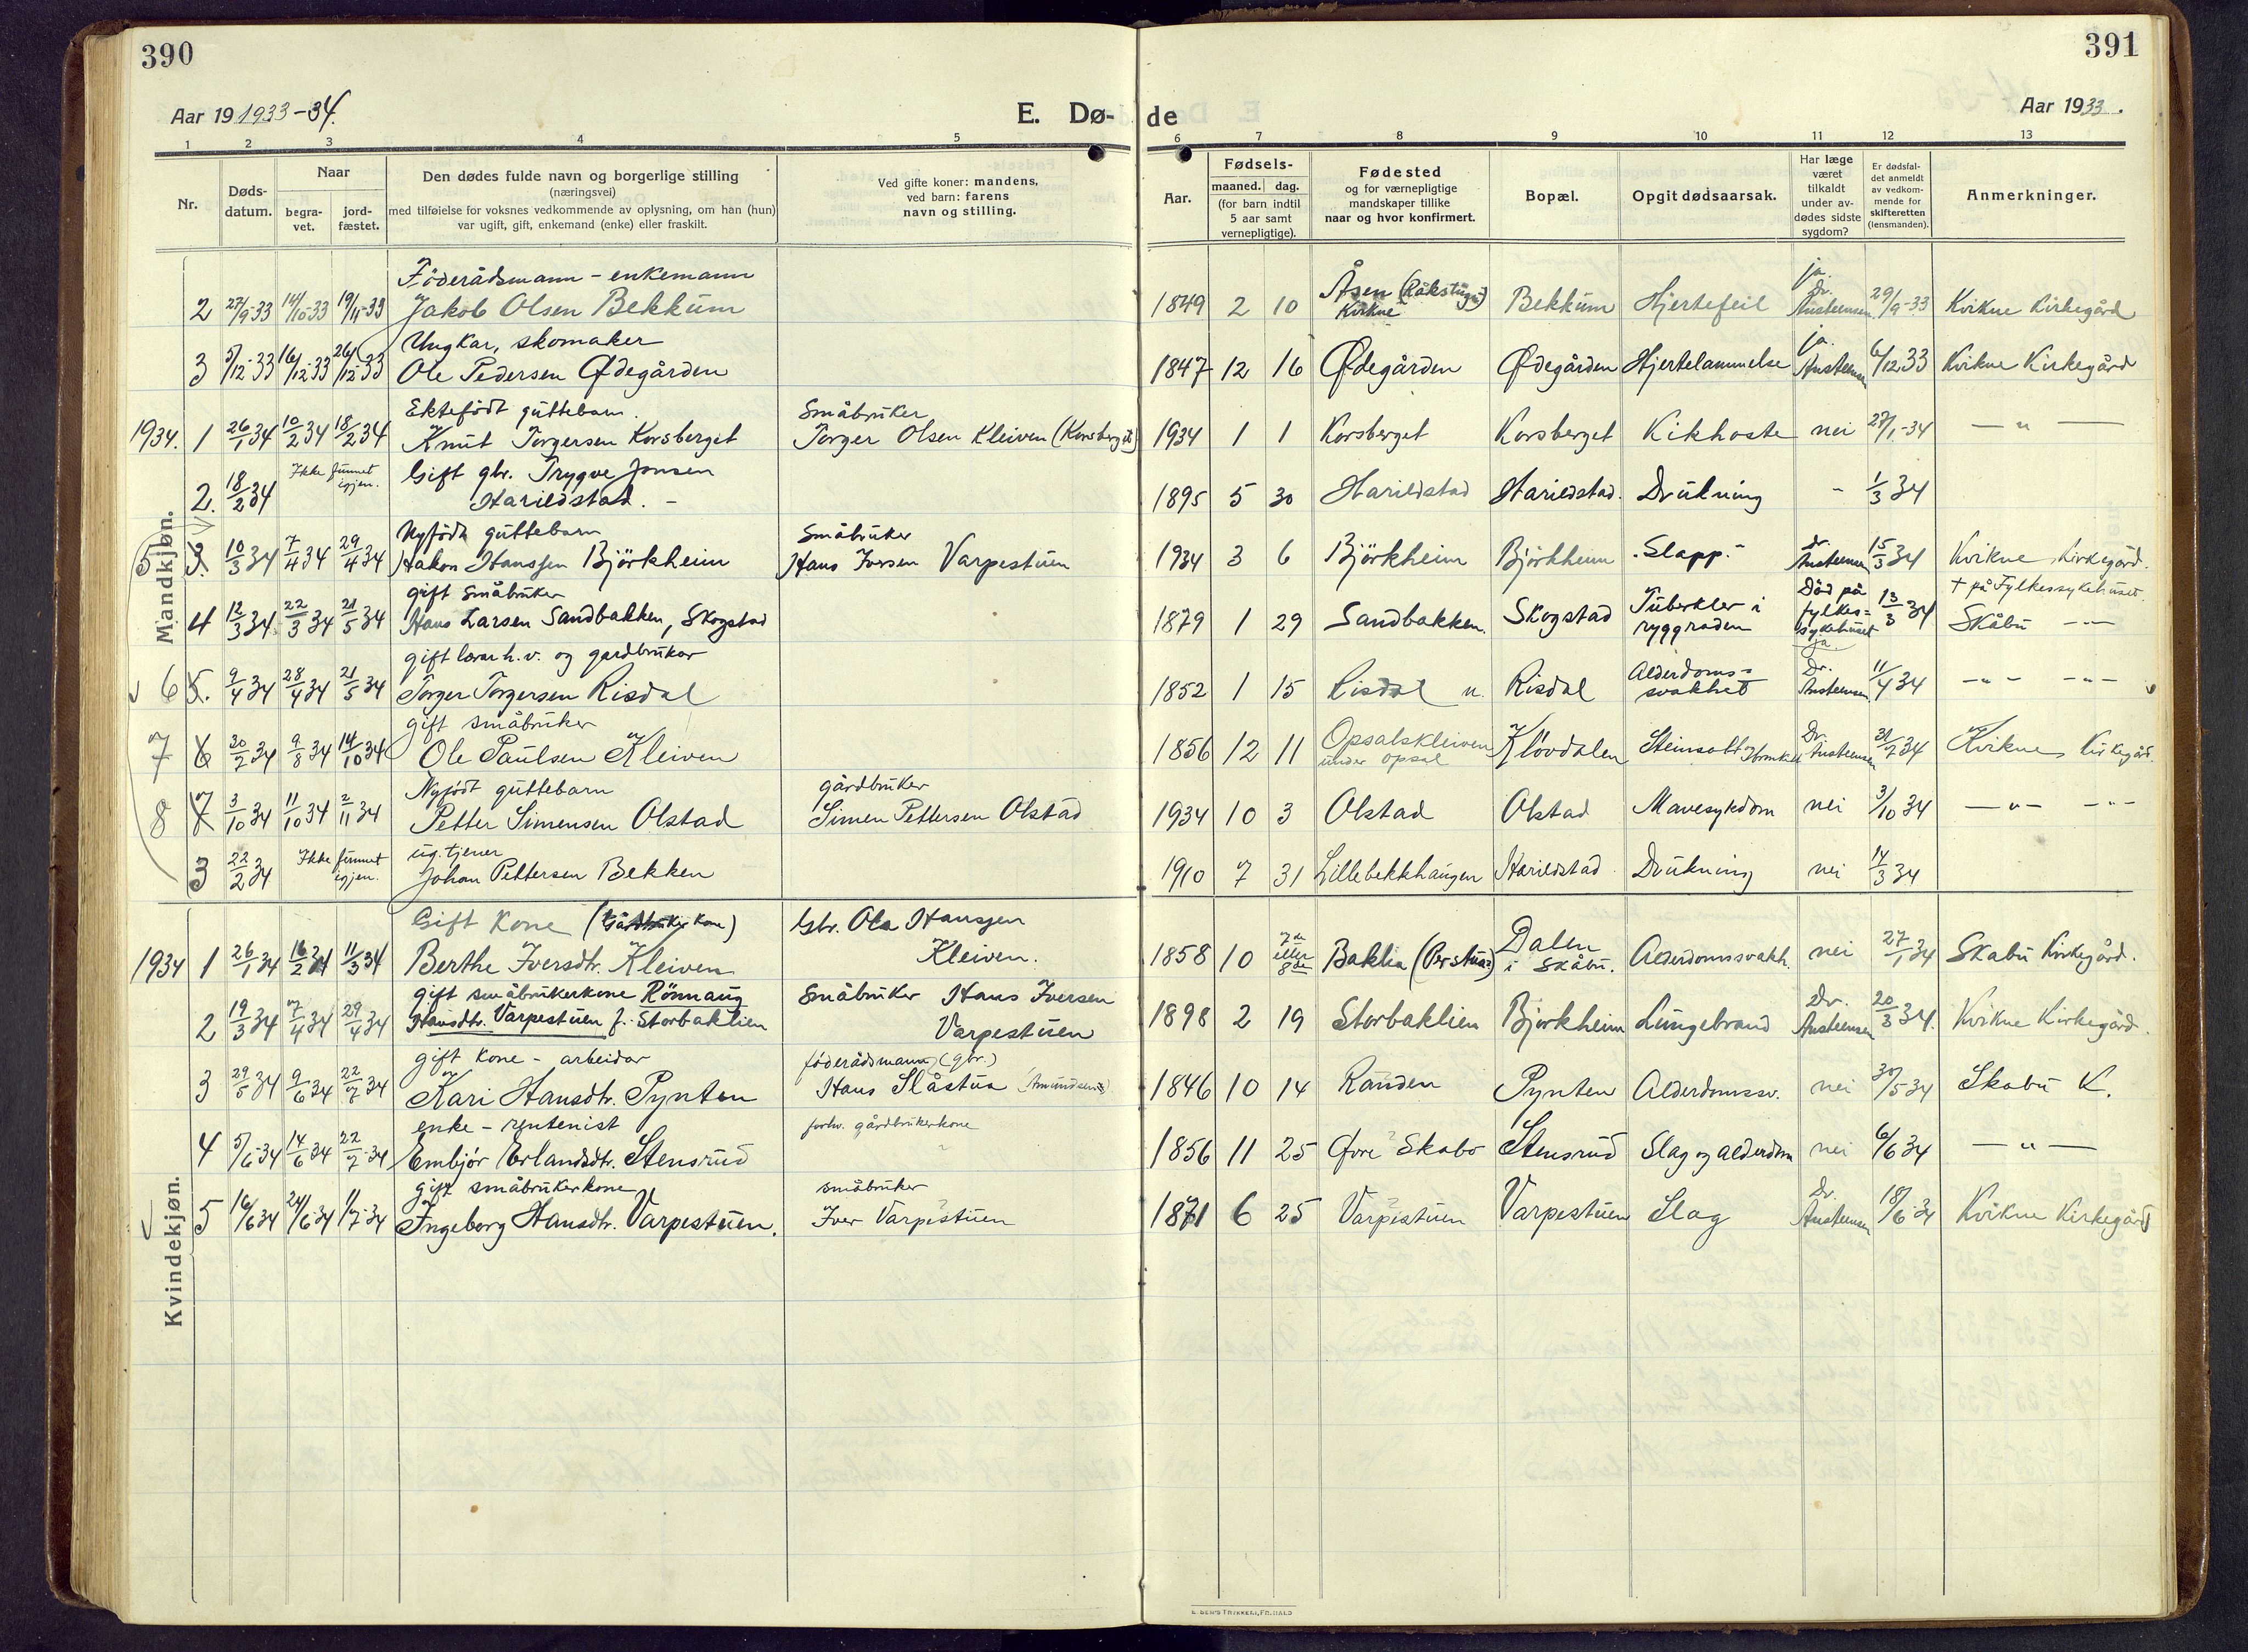 390
Aar 19 1933-34.
E. Dø-
1 2 3 4 5
Nr.
Døds-
datum.
Naar
begra-
vet.
jord-
fæstet.
Den dødes fulde navn og borgerlige stilling
(næringsvei)
med tilføielse for voksnes vedkommende av oplysning, om han (hun)
var ugift, gift, enkemand (enke) eller fraskilt.
Ved gifte koner: mandens,
ved barn: farens
navn og stilling.
Mandkjøn.
Föderådsmann - enkemann
2 27/9-33 14/10-33 19/11-33 Jakob Olsen Bekkum
Ungkar, skomaker
3 5/12-33 16/12-33 26/12-33 Ole Pedersen Ødegården
Ektefödt guttebarn. Småbruker
1934. 1 26/1 34 10/2 34 18/2 34 Knut Torgersen Korsberget Torger Olsen Kleiven (Korsberget)
Ikke funnet igjen. Gift gbr. Trygve Jonsen
2. 18/2 34 Harildstad. -
Nyfödt guttebarn Småbruker
5 3. 10/3 34 7/4 34 29/4 34 Håkon Hanssen Björkheim Hans Iversen Varpestuen
gift Småbruker
4 12/3 34 22/3 34 21/5 34 Hans Larsen Sandbakken, Skogstad
gift lærar h.v. og gardbrukar
6 5. 9/4 34 28/4 34 21/5 34 Torger Torgersen Risdal
gift småbruker
7 6 30/7 34 9/8 34 14/10 34 Ole Paulsen Kleiven
Nyfödt guttebarn gårdbruker
8 7 3/10 34 11/10 34 2/11 34 Petter Simensen Olstad Simen Pettersen Olstad
Ikke funnet igjen. ug. tjener
3 22/2 34 Johan Pettersen Bekken
Kvindekjøn.
Gift Kone (Gårdbruker Kone) Gbr. Ola Hanssen
1934 1 26/1 34 16/2 34 11/3 34 Berthe Iversdtr. Kleiven Kleiven.
gift småbrukerkone Rönnaug Småbruker Hans Iversen
2 19/3 34 7/4 34 29/4 34 Hansdtr. Varpestuen f. Storbaklien Varpestuen
gift Kone - arbeidar föderådsmann (gbr.)
3 29/5 34 9/6 34 22/7 34 Kari Hansdtr. Pynten Hans Slåstua (Amundsen)
enke - rentenist forhv. gårdbrukerkone
4 5/6-34 14/6 34 22/7-34 Embjör Erlandsdtr. Stensrud
gift småbrukerkone småbruker
5 16/6 34 24/6-34 11/7-34 Ingeborg Hansdtr. Varpestuen. Iver Varpestuen
391
de
Aar 1933.
6 7 8 9 10 11 12 13
Aar.
Fødsels-
maaned. dag.
(for barn indtil
5 aar samt
vernepligtige).
Fødested
og for værnepligtige
mandskaper tillike
naar og hvor konfirmert.
Bopæl.
Opgit dødsaarsak.
Har læge
været
tilkaldt
under av-
dødes sidste
sygdom?
Er dødsfal-
det anmeldt
av vedkom-
mende for
skifteretten
(lensmanden).
Anmerkninger.
1849 2 10 Åsen (Råkstugu) Kvikne Bekkum Hjertefeil ja. Dr. Austeensen 29/9-33 Kvikne Kirkegård
1847 12 16 Ødegården Ødegården Hjertelammelse ja. Austeensen 6/12 33 Kvikne Kirkegård
1934 1 1 Korsberget Korsberget Kikhoste nei 27/1-34 — " —
1895 5 30 Harildstad Harildstad. Drukning - 1/3 34
1934 3 6 Björkheim Björkheim Slapp.- dr. Austeensen 15/3 34 Kvikne Kirkegård.
1879 1 29 Sandbakken. Skogstad Tuberkler i ryggraden Död på fylkes= sykehuset ja. 13/3 34 † på Fylkessykehuset. Skåbu — " —
1852 1 15 Risdal n. Risdal Alderdoms= svakhet Dr. Austeensen 11/4 34 — " — — " —
1856 12 11 Opsalskleiven under Opsal Klövdalen Steinsott Dr. Austeensen 31/7 34 Kvikne Kirkegård.
1934 10 3 Olstad Olstad Mavesykdom nei 3/10 34 — " — — " —
1910 7 31 Lillebekkhaugen Harildstad Drukning nei 14/3 34
1858 10 7de eller 8de Baklia (Perstua) Dalen i Skåbu. Alderdomssvakh. nei 27/1 34 Skabu Kirkegård.
1898 2 19 Storbaklien Bjorkheim Lungebrand Dr. Austeensen 20/3 34. Kvikne Kirkegård.
1846 10 14 Randen Pynten Alderdomssv. nei 30/5 34 Skabu K.
1856 11 25 Øvre Skabo Stensrud Slag og alderdom nei 6/6 34 — " —
1871 6 25 Varpestuen Varpestuen Slag Dr. Austeensen 18/6-34 Kvikne Kirkegård